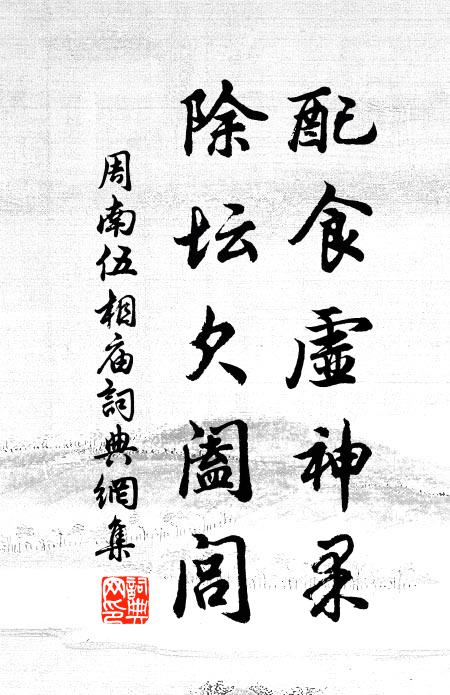 配食虚神
除坛久阖闾
周南伍相庙詞典網集
詞典
网印